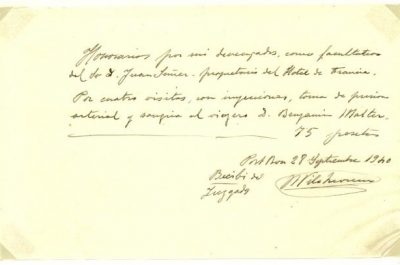 Honorarios por mi devengados, como facultativo
del Sr D. Juan Suñer - propietario del Hotel de Francia.
Por cuatro visitas, con inyecciones, toma de presion
arterial y sangria al viajero D. Benjamin Walter.
75 pesetas
Port Bou 28 Septiembre 1940
Recibi del
Juzgado